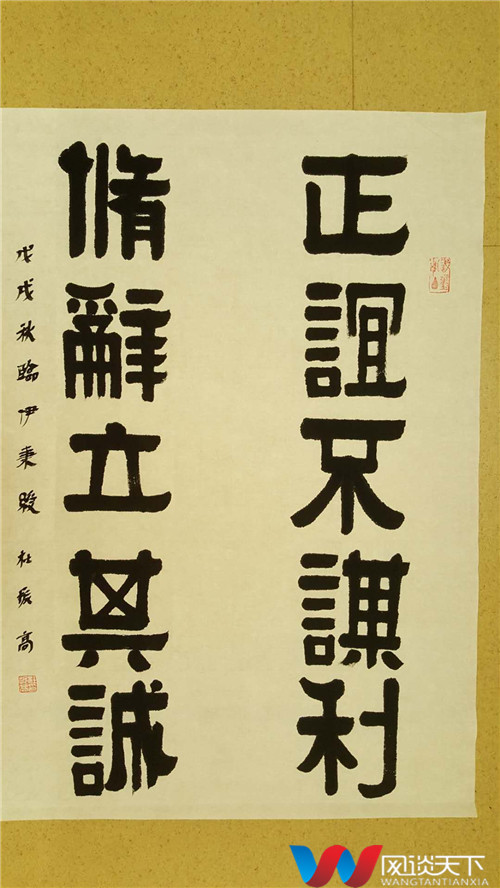 正誼不謀利
脩辭立其誠
戊戌秋臨伊秉綬 杜振高
网谈天下
WANGTANTIANXIA